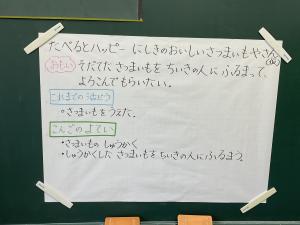 たべるとハッピー にしきのおいしいさつまいもやさん
おもい そだてた さつまいもを ちいきの人に ふるまって、
よろこんでもらいたい。
これまでの活どう
•さつまいもをうえた。
こんごのよてい
•さつまいもの しゅうかく
•しゅうかくした さつまいもを ちいきの人に ふるまう。